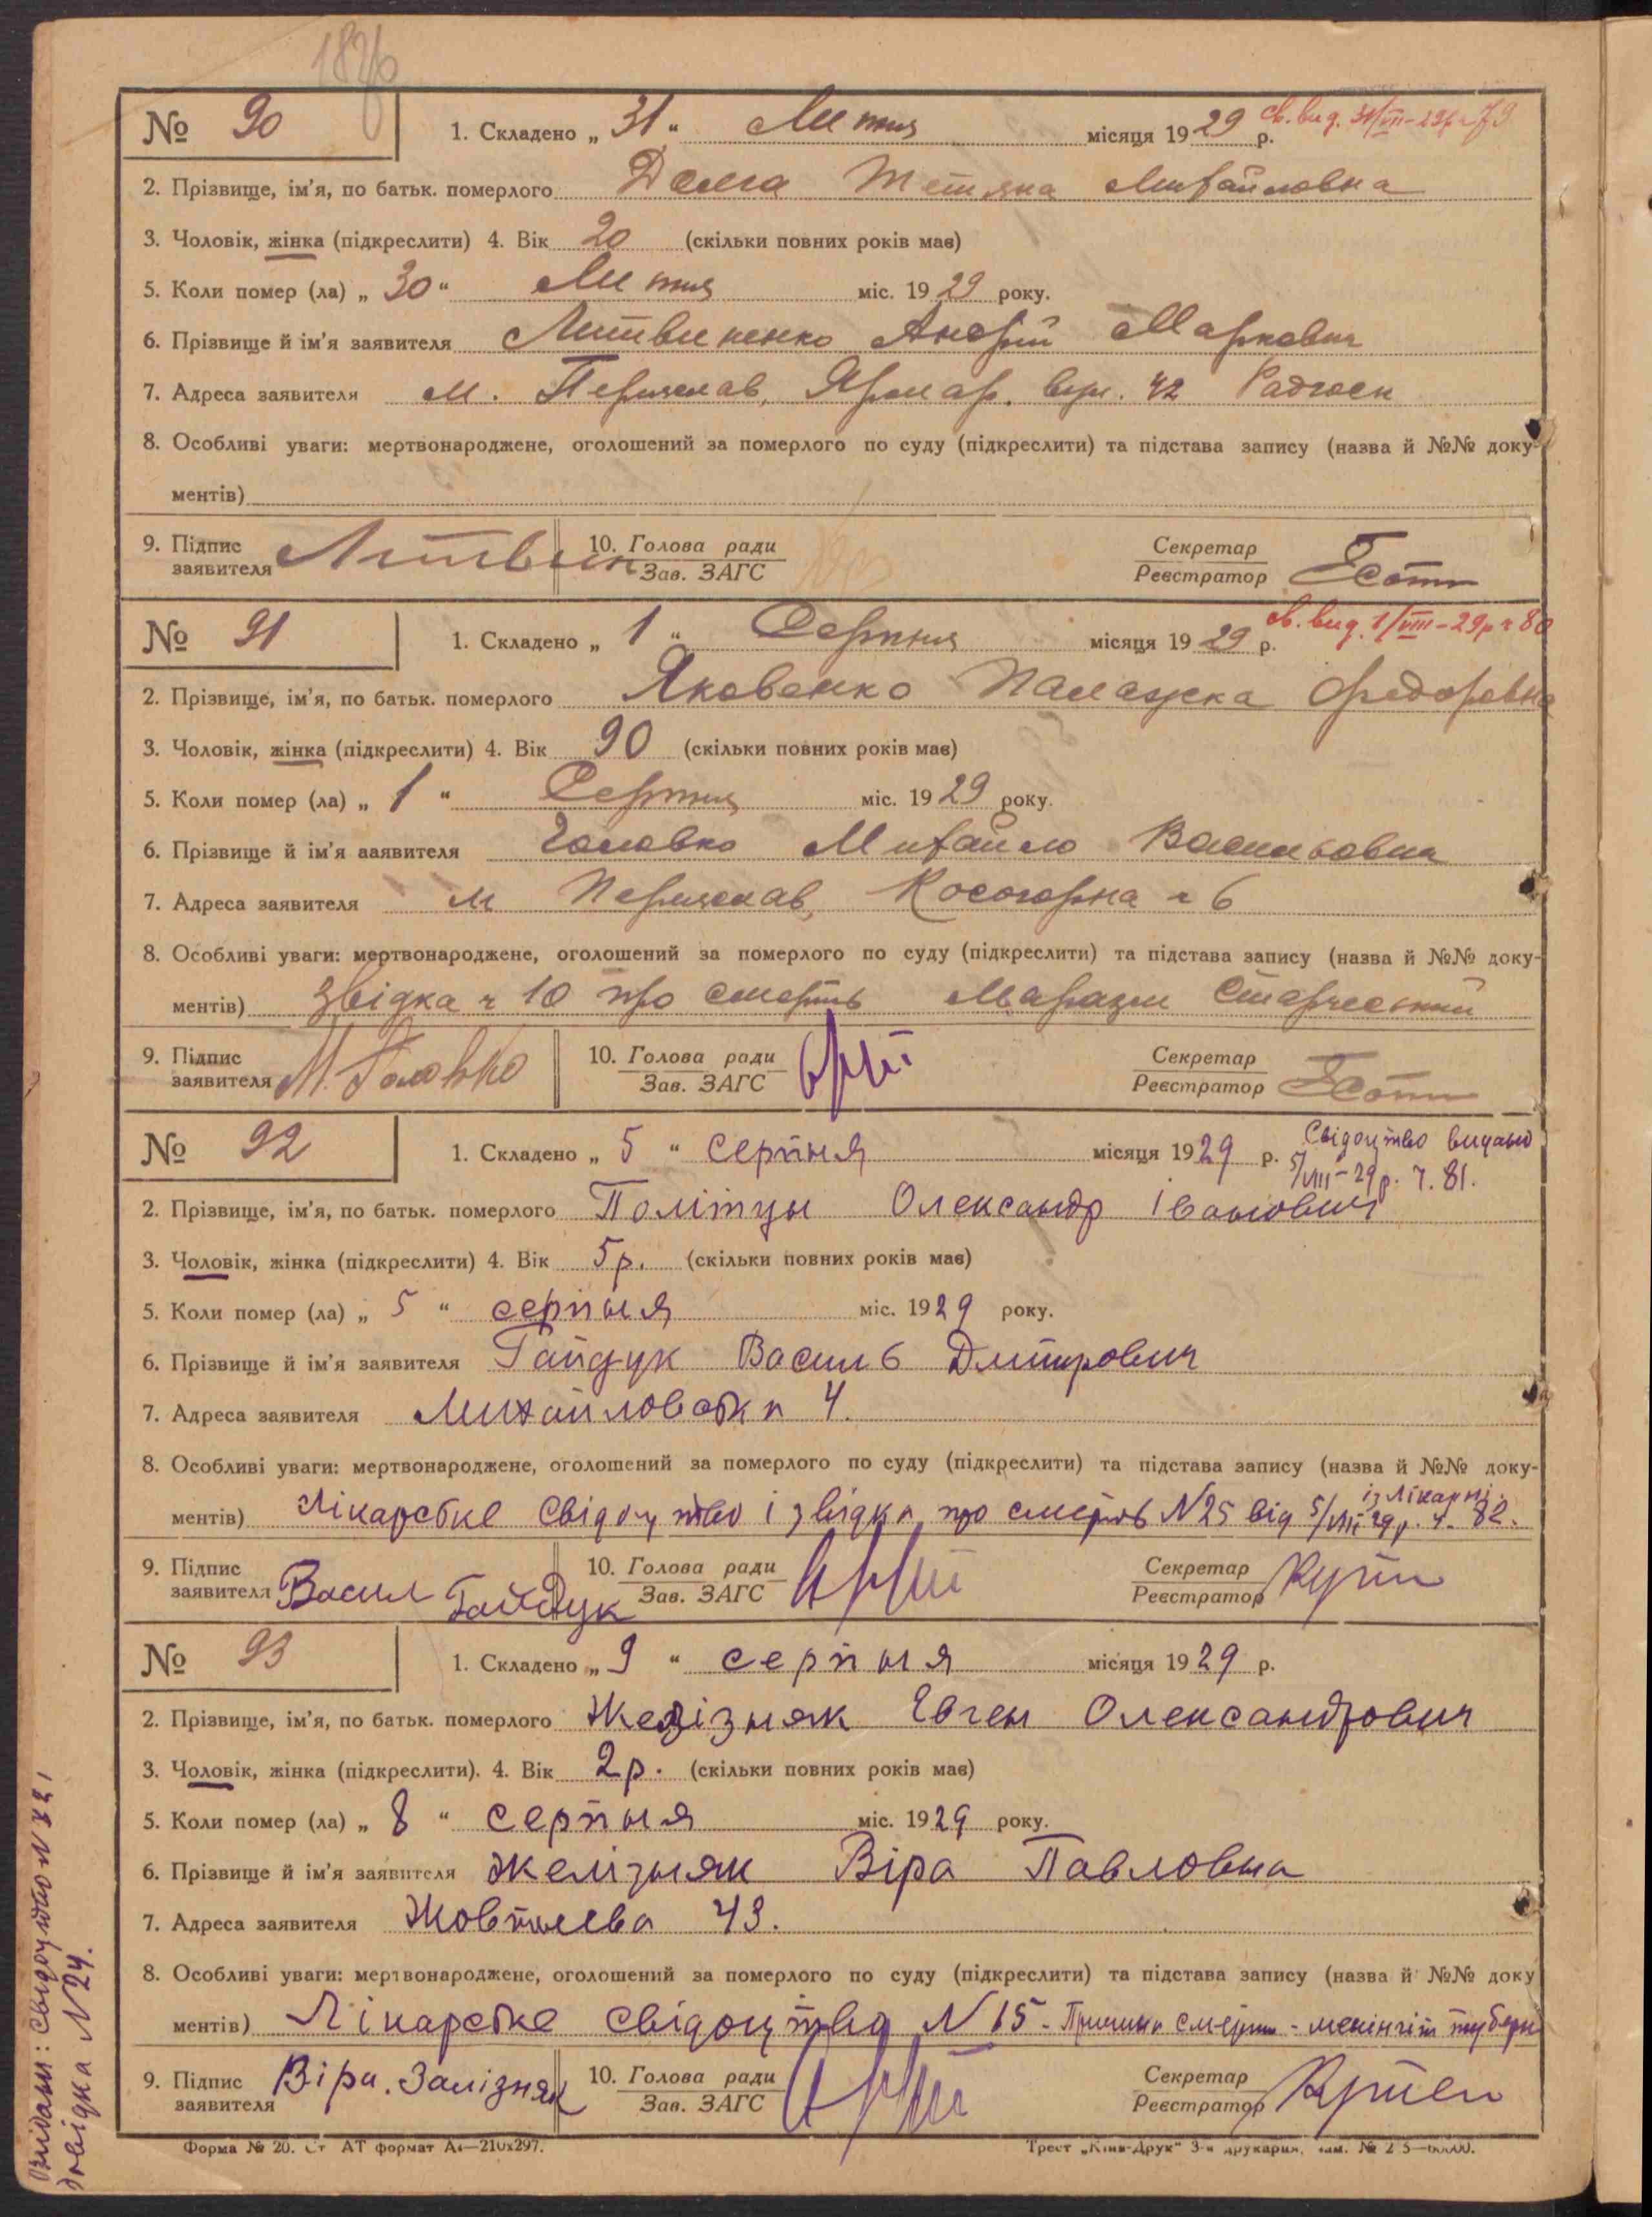 № 90
1. Складено „ 31 “ Липня місяця 1929 р. св. вид. 31/VII-29р ч 79
2. Прізвище, ім’я, по батьк. померлого Тетяна Михайловна
3. Чоловік, жінка (підкреслити) 4. Вік 20 (скільки повних років має)
5. Коли помер (ла) „ 30 “ Липня міс. 1929 року.
6. Прізвище й ім’я заявителя Литвиненко Андрій Маркович
7. Адреса заявителя м. Переяслав, Ярмар. вул. 42
8. Особливі уваги: мертвонароджене, оголошений за померлого по суду (підкреслити) та підстава запису (назва й №№ доку-
ментів)
9. Підпис заявителя Литвин 10. Голова ради Зав. ЗАГС Секретар Реєстратор
№ 91
1. Складено „ 1 “ Серпня місяця 1929 р. св. вид. 1/VIII-29р ч 80
2. Прізвище, ім’я, по батьк. померлого Яковенко Палажка Федоровна
3. Чоловік, жінка (підкреслити) 4. Вік 90 (скільки повних років має)
5. Коли помер (ла) „ 1 “ Серпня міс. 1929 року.
6. Прізвище й ім’я заявителя Головко Михайло Васильович
7. Адреса заявителя м Переяслав, Косогорна ч 6
8. Особливі уваги: мертвонароджене, оголошений за померлого по суду (підкреслити) та підстава запису (назва й №№ доку-
ментів) Звідка ч 10 про смерть Маразм Старческий
9. Підпис заявителя М. Головко 10. Голова ради Зав. ЗАГС Секретар Реєстратор
№ 92
1. Складено „ 5 “ серпня місяця 1929 р. Свідоцтво видано
5/VIII-29р. ч. 81.
2. Прізвище, ім’я, по батьк. померлого Олександр Іванович
3. Чоловік, жінка (підкреслити) 4. Вік 5р. (скільки повних років має)
5. Коли помер (ла) „ 5 “ серпня міс. 1929 року.
6. Прізвище й ім’я заявителя Гайдук Василь Дмитрович
7. Адреса заявителя 4.
8. Особливі уваги: мертвонароджене, оголошений за померлого по суду (підкреслити) та підстава запису (назва й №№ доку-
ментів) Лікарське Свідоцтво і звідка про смерть N25 від 5/VIII 29р. ч. 82. із Лікарні.
9. Підпис заявителя Васил Гайдук 10. Голова ради Зав. ЗАГС Секретар Реєстратор
№ 93
1. Складено „ 9 “ серпня місяця 1929 р.
2. Прізвище, ім’я, по батьк. померлого Желізняк Євген Олександрович
3. Чоловік, жінка (підкреслити). 4. Вік 2р. (скільки повних років має)
5. Коли помер (ла) „ 8 “ серпня міс. 1929 року.
6. Прізвище й ім’я заявителя Желізняк Віра Павловна
7. Адреса заявителя Жовтнева 43.
8. Особливі уваги: мертвонароджене, оголошений за померлого по суду (підкреслити) та підстава запису (назва й №№ доку
ментів) Лікарське свідоцтво N 15 - Причина смерти - менінгіт
9. Підпис заявителя Віра. Залізняк 10. Голова ради Зав. ЗАГС Секретар Реєстратор
Форма № 20. Ст АТ формат А4—210x297.
Трест „Київ-Друк“ 3-я друкарня, зам. №
свидоцтво N 82,
довідка N 24.